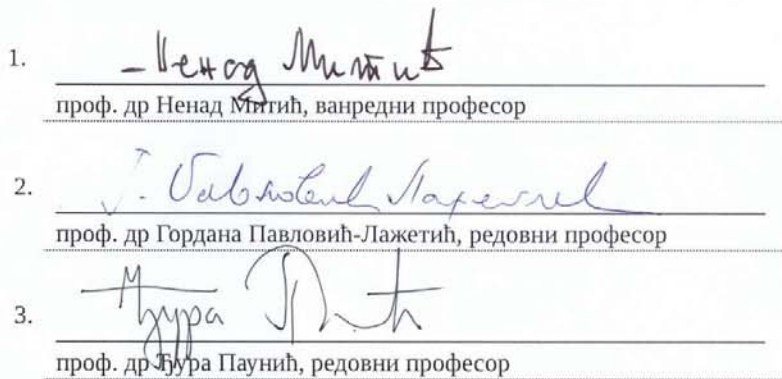 1.
Ненад Митић
проф. др Ненад Митић, ванредни професор
2.
Г. Павловић Лажетић
проф. др Гордана Павловић-Лажетић, редовни професор
3.
Ђура
проф. др Ђура Паунић, редовни професор